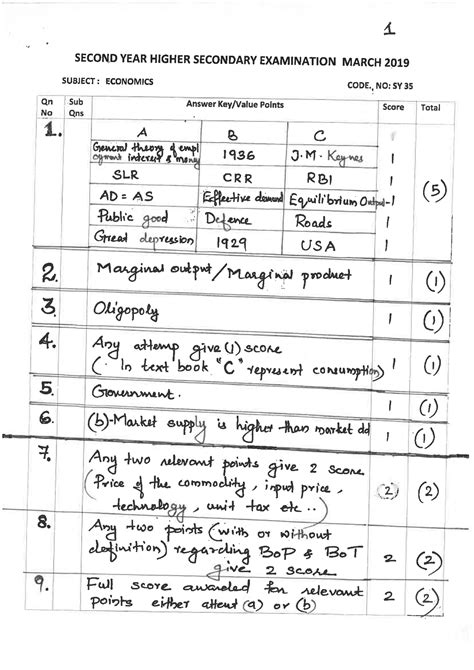 1
SECOND YEAR HIGHER SECONDARY EXAMINATION MARCH 2019
SUBJECT : ECONOMICS
CODE., NO: SY 35
Qn No Sub Qns Answer Key/Value Points Score Total
1. A B C
General theory of empl
oyment interest & money 1936 J.M. Keynes 1
SLR CRR RBI 1
AD = AS Effective demand Equilibrium Output 1 (5)
Public good Defence Roads 1
Great depression 1929 USA 1
2. Marginal output / Marginal product 1 (1)
3. Oligopoly 1 (1)
4. Any attemp give (1) score
(. In text book "C" represent consumption) 1 (1)
5. Government. 1 (1)
6. (b)-Market supply is higher than market dd 1 (1)
7. Any two relevant points give 2 score
(Price of the commodity, input price, (2) (2)
technology, unit tax etc ..)
8. Any two points (with or without
definition) regarding BoP & BoT 2 (2)
give 2 score
9. Full score awarded for relevant
points either attent (a) or (b) 2 (2)